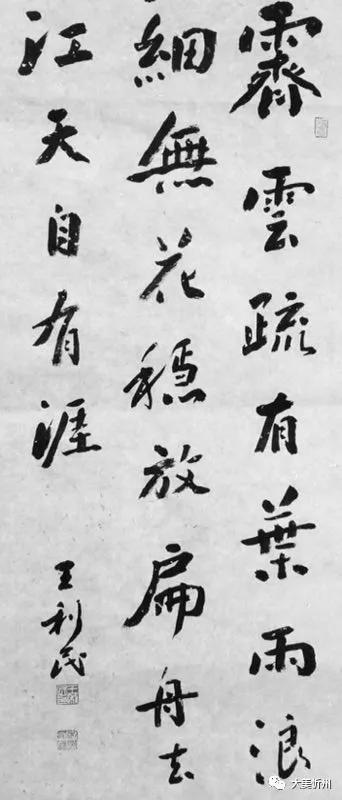 霽雲疏有葉雨浪
細無花穩放扁舟去
江天自有涯
王利民
大美忻州